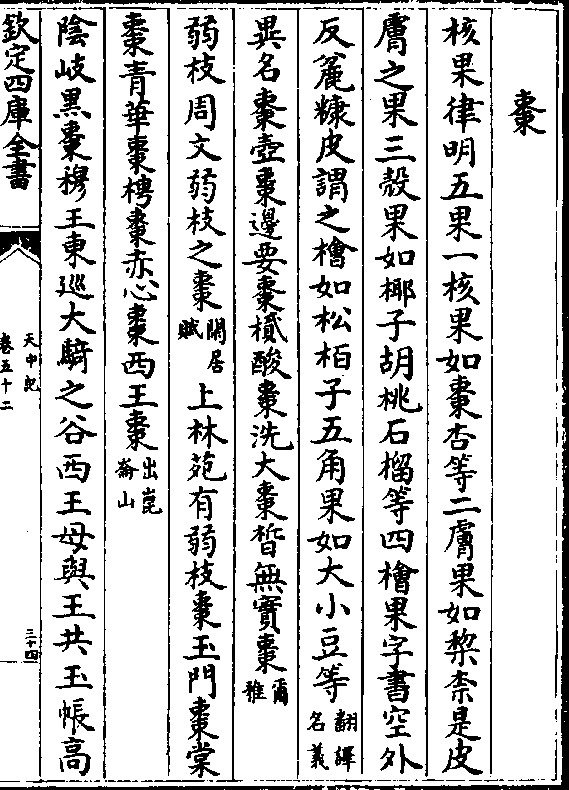 棗
核果律明五果一核果如棗杏等二膚果如棃柰是皮
膚之果三殼果如椰子胡桃石榴等四檜果字書空外
反麄糠皮謂之檜如松栢子五角果如大小豆等翻繹名義
異名棗壺棗邊要棗樲酸棗洗大棗晳無實棗爾雅
弱枝周文弱枝之棗閒居賦上林苑有弱枝棗玉門棗棠
棗青華棗梬棗赤心棗西王棗出崑崙山
陰岐黒棗穆王東廵大騎之谷西王母與王共玉帳高
欽定四庫全書
天中記
卷五十二
三十四